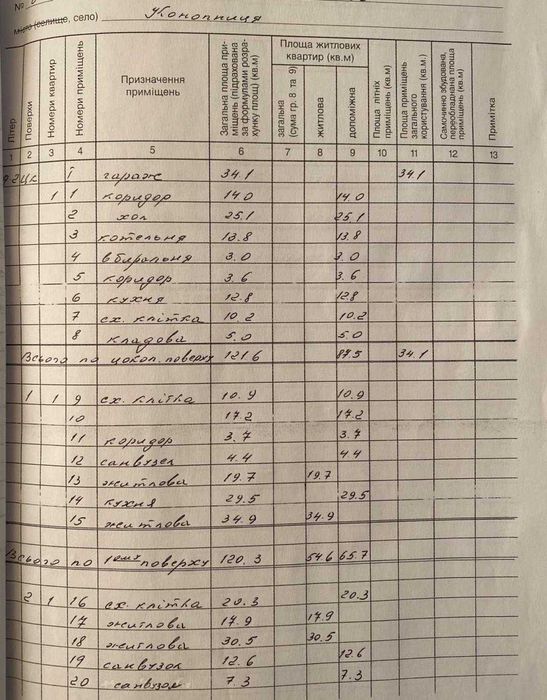 №
Місто (селище, село) Конопниця
Літер
Поверхи
Номери квартир
Номери приміщень
Призначення приміщень
Загальна площа приміщень (підрахована за формулами розрахунку площ) (кв.м)
Площа житлових квартир (кв.м)
загальна (сума гр. 8 та 9)
житлова
допоміжна
Площа літніх приміщень (кв.м)
Площа приміщень загального користування (кв.м.)
Самочинно збудована, переобладнана площа приміщень (кв.м)
Примітка
1 2 3 4 5 6 7 8 9 10 11 12 13
цк І гараж 34.1 34.1
1 1 коридор 14.0 14.0
2 хол 25.1 25.1
3 котельня 13.8 13.8
4 вбиральня 3.0 3.0
5 коридор 3.6 3.6
6 кухня 12.8 12.8
7 сх. клітка 10.2 10.2
8 кладова 5.0 5.0
Всього по цокол. поверху 121.6 87.5 34.1
1 1 9 сх. клітка 10.9 10.9
10 17.2 17.2
11 коридор 3.7 3.7
12 санвузол 4.4 4.4
13 житлова 19.7 19.7
14 кухня 29.5 29.5
15 житлова 34.9 34.9
Всього по 1ому поверху 120.3 54.6 65.7
2 1 16 сх. клітка 20.3 20.3
17 житлова 17.9 17.9
18 житлова 30.5 30.5
19 санвузол 12.6 12.6
20 санвузол 7.3 7.3